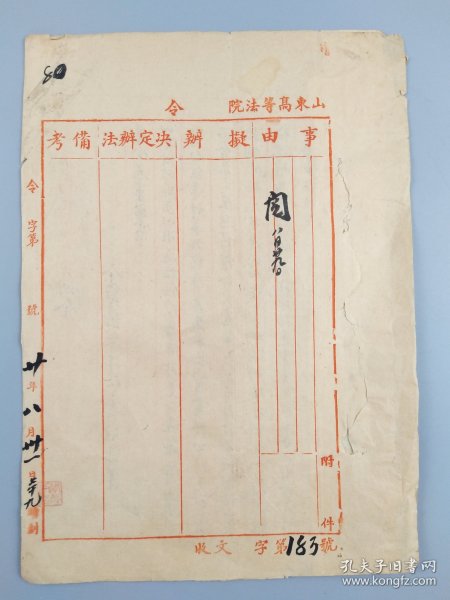 80
山東高等法院　令
事由
擬辦
決定辦法
備考
閱
八月卅九日
附件
收文　字第183號
令　字第　號
廿年八月卅一日
孔夫子旧书网
www.kongfz.com